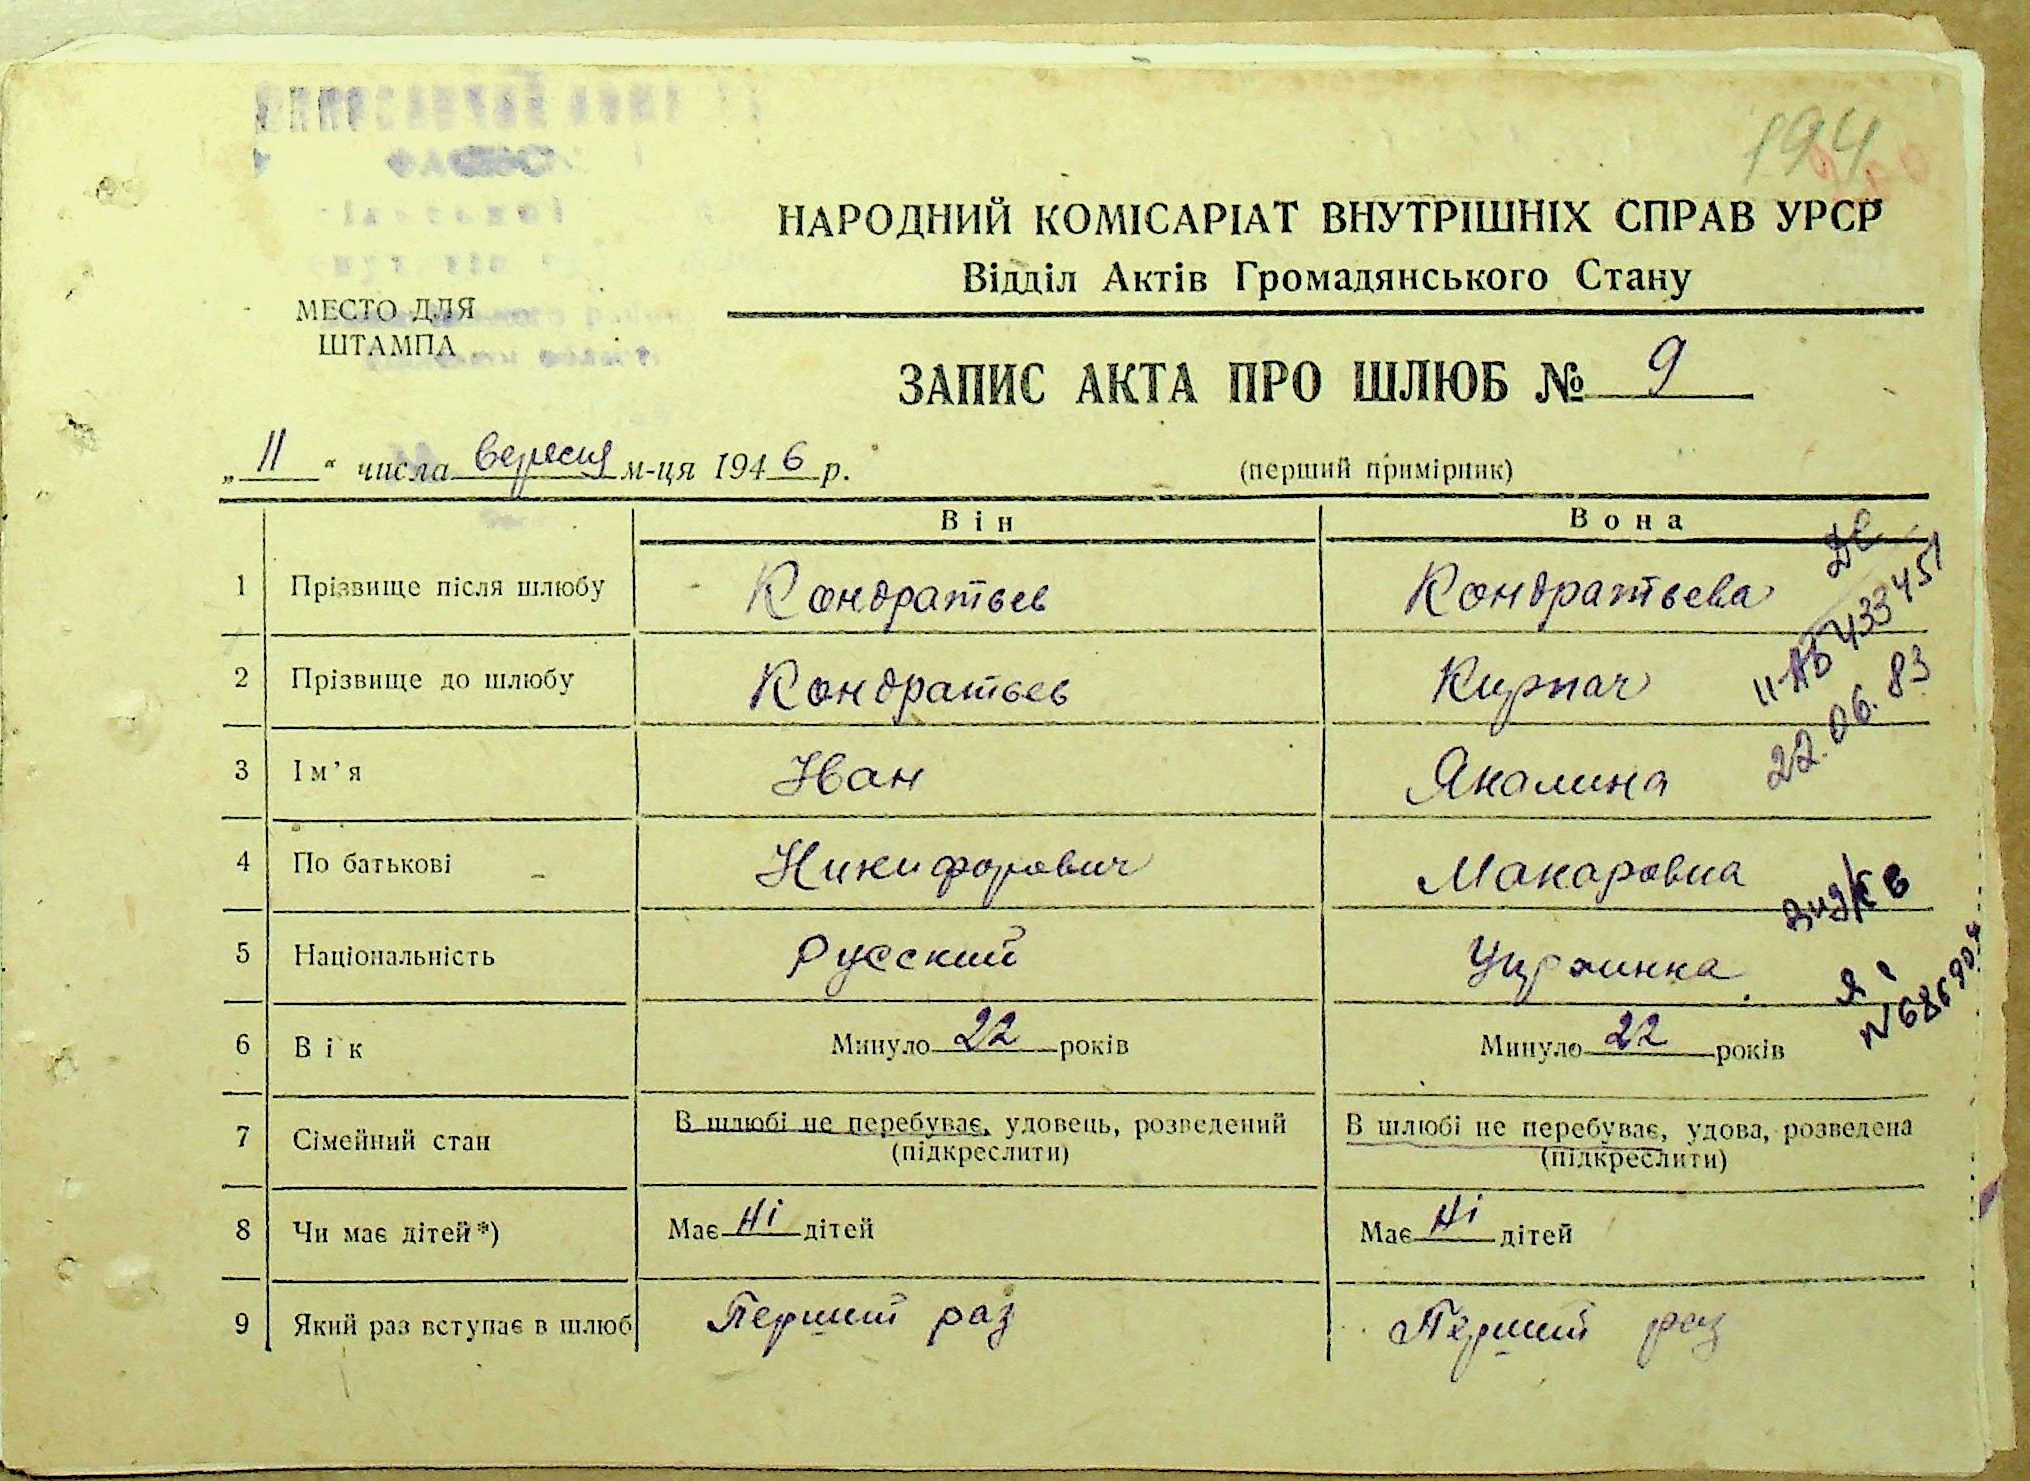 194
НАРОДНИЙ КОМІСАРІАТ ВНУТРІШНІХ СПРАВ УРСР
Відділ Актів Громадянського Стану
МЕСТО ДЛЯ
ШТАМПА
ЗАПИС АКТА ПРО ШЛЮБ № 9
„11“ числа вересня м-ця 1946 р.
(перший примірник)
Він Вона
1 Прізвище після шлюбу Кондратьев Кондратьева
2 Прізвище до шлюбу Кондратьев Кирпач
3 Ім'я Іван Акалина
4 По батькові Никифорович Макаровна
5 Національність Русский Украинка
6 Вік Минуло 22 років Минуло 22 років
7 Сімейний стан В шлюбі не перебуває, удовець, розведений В шлюбі не перебуває, удова, розведена
(підкреслити) (підкреслити)
8 Чи має дітей*) Має ні дітей Має ні дітей
9 Який раз вступає в шлюб Перший раз Перший раз
II-АБ 433451
22.06.83